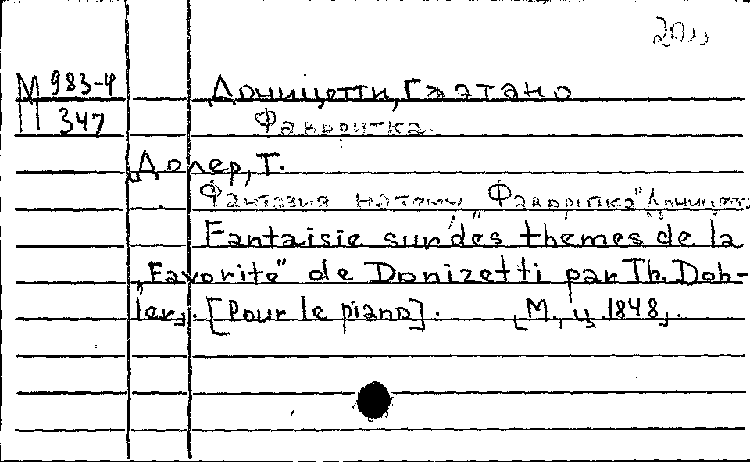 20
М 983-4 Доницетти, Гаэтано
П 347 Фаворитка.
Долер, Т.
Фантазия на темы "Фаворитка" Доницетти
Fantaisie sur des thèmes de la
„Favorite" de Donizetti par Th. Döh-
ler. [Pour le piano]. [М., ц. 1848].